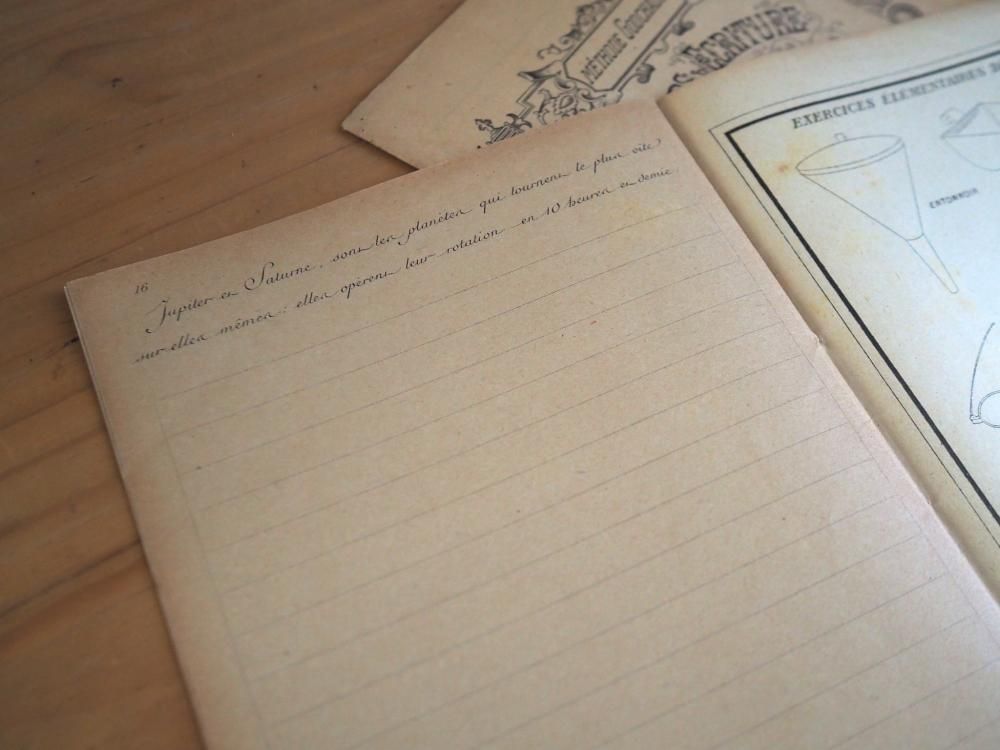 MÉTHODE
ÉCRITURE
16
Jupiter et Saturne, sont les planètes qui tournent le plus vite
sur elles mêmes : elles opèrent leur rotation en 10 heures et demie.
EXERCICES ÉLÉMENTAIRES
ENTONNOIR